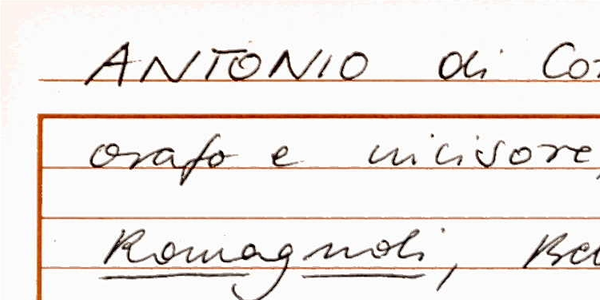 ANTONIO di Co
orafo e incisore,
Romagnoli, Be